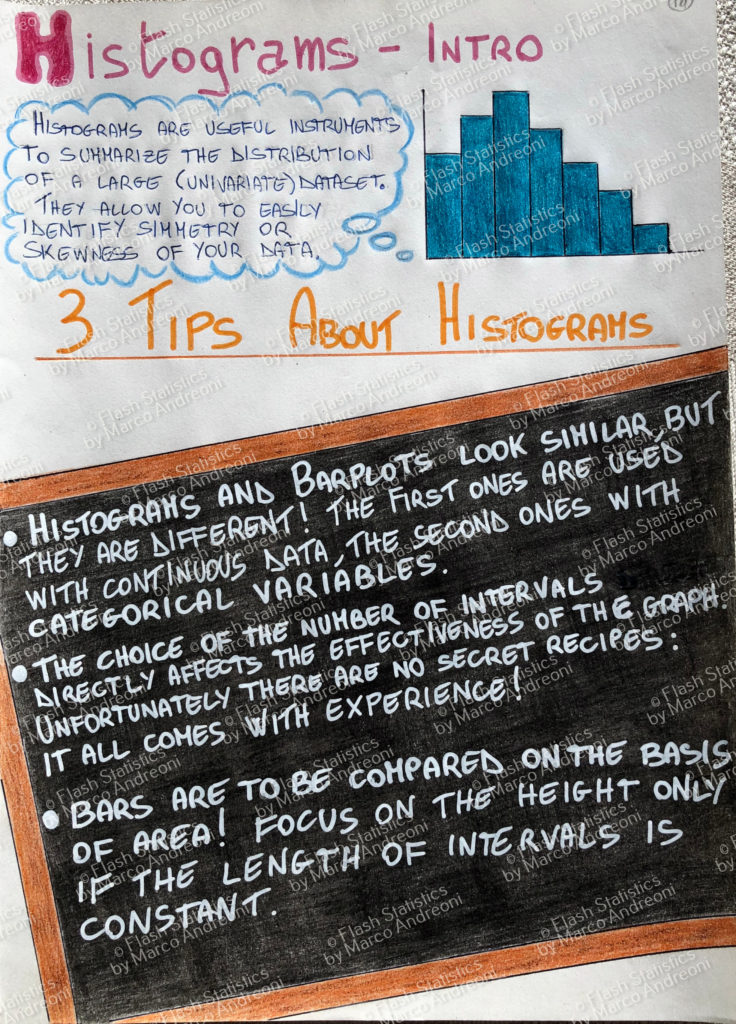 Histograms - INTRO
HISTOGRAMS ARE USEFUL INSTRUMENTS
TO SUMMARIZE THE DISTRIBUTION
OF A LARGE (UNIVARIATE) DATASET.
THEY ALLOW YOU TO EASILY
IDENTIFY SIMMETRY OR
SKEWNESS OF YOUR DATA.
3 TIPS ABOUT HISTOGRAMS
• HISTOGRAMS AND BARPLOTS LOOK SIMILAR, BUT
THEY ARE DIFFERENT! THE FIRST ONES ARE USED
WITH CONTINUOUS DATA, THE SECOND ONES WITH
CATEGORICAL VARIABLES.
• THE CHOICE OF THE NUMBER OF INTERVALS
DIRECTLY AFFECTS THE EFFECTIVENESS OF THE GRAPH.
UNFORTUNATELY THERE ARE NO SECRET RECIPES:
IT ALL COMES WITH EXPERIENCE!
• BARS ARE TO BE COMPARED ON THE BASIS
OF AREA! FOCUS ON THE HEIGHT ONLY
IF THE LENGTH OF INTERVALS IS
CONSTANT.
© Flash Statistics
by Marco Andreoni